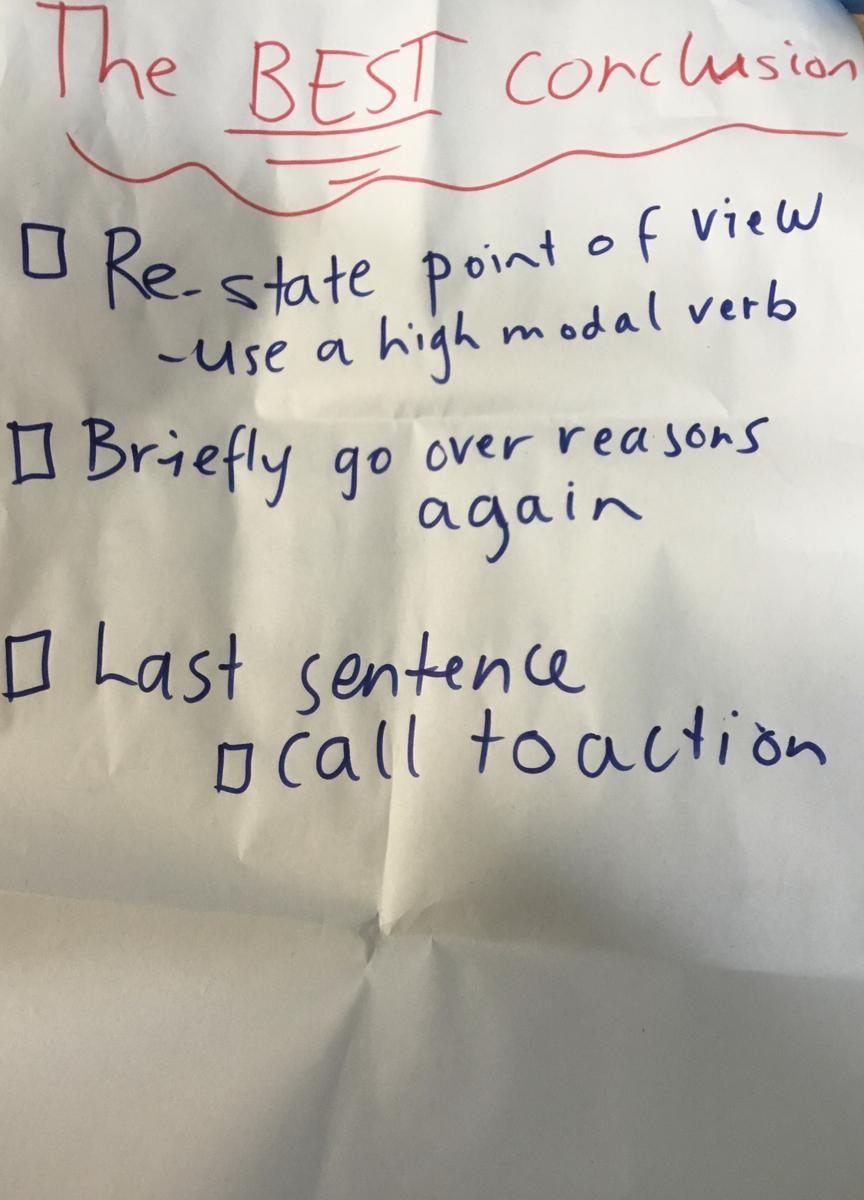 The BEST conclusion
Re-state point of view
-use a high modal verb
Briefly go over reasons
again
Last sentence
call to action